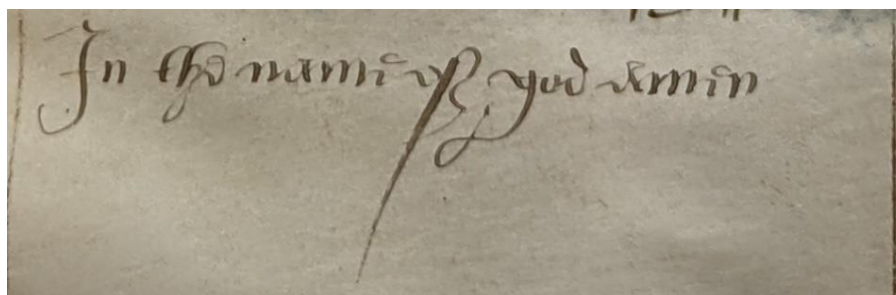 In the name of god amen